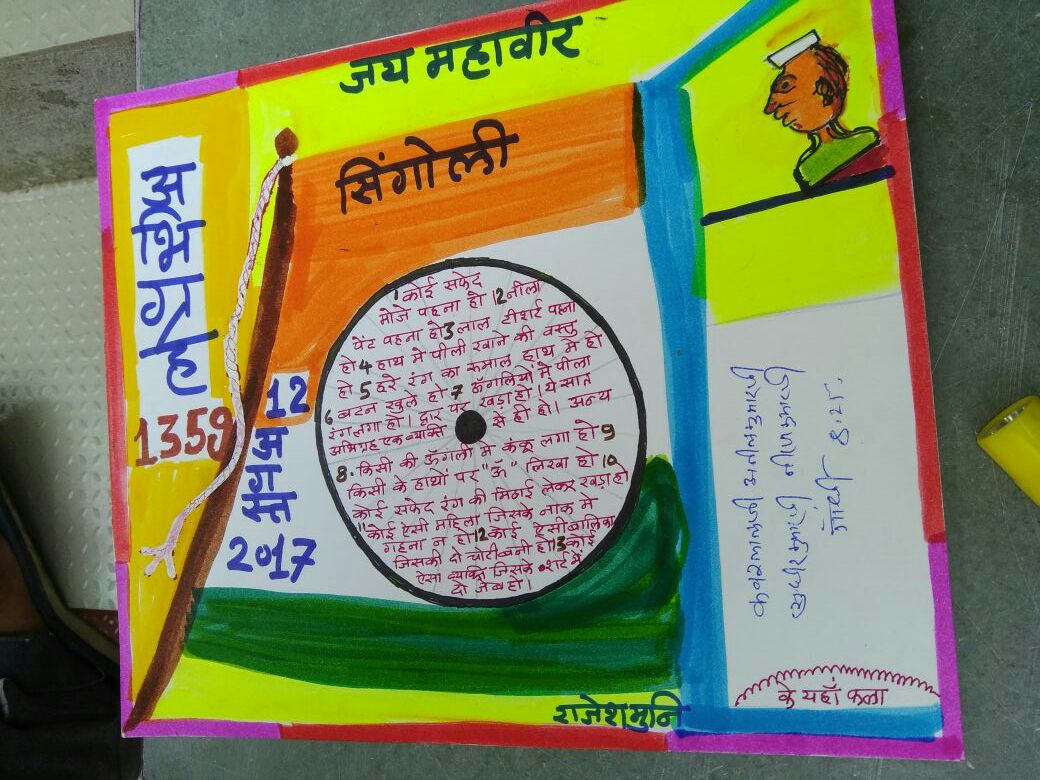 जय महावीर
सिंगोली
अभिग्रह
1359
12
अगस्त
2017
1 कोई सफेद
मोजे पहना हो 12 नीला
पेंट पहना हो 3 लाल टीशर्ट पहना
हो 4 हाथ मे पीली खाने की वस्तु
हो 5 हरे रंग का रूमाल हाथ मे हो
6 बटन खुले हो 7 ऊँगलियों मे पीला
रंग लगा हो। द्वार पर खड़ा हो। ये सात
अभिग्रह एक व्यक्ति से ही हो। अन्य
8. किसी की ऊँगली मे कंकू लगा हो 9
किसी के हाथों पर "ॐ" लिखा हो 10
कोई सफेद रंग की मिठाई लेकर खड़ा हो
11 कोई ऐसी महिला जिसके नाक मे
गहना न हो 12 कोई ऐसी बालिका
जिसकी दो चोटी बनी हो 13 कोई
ऐसा व्यक्ति जिसके शर्ट में
दो जेब हो।
राजेशमुनि
गाँधी 8.25.
के यहाँ फला